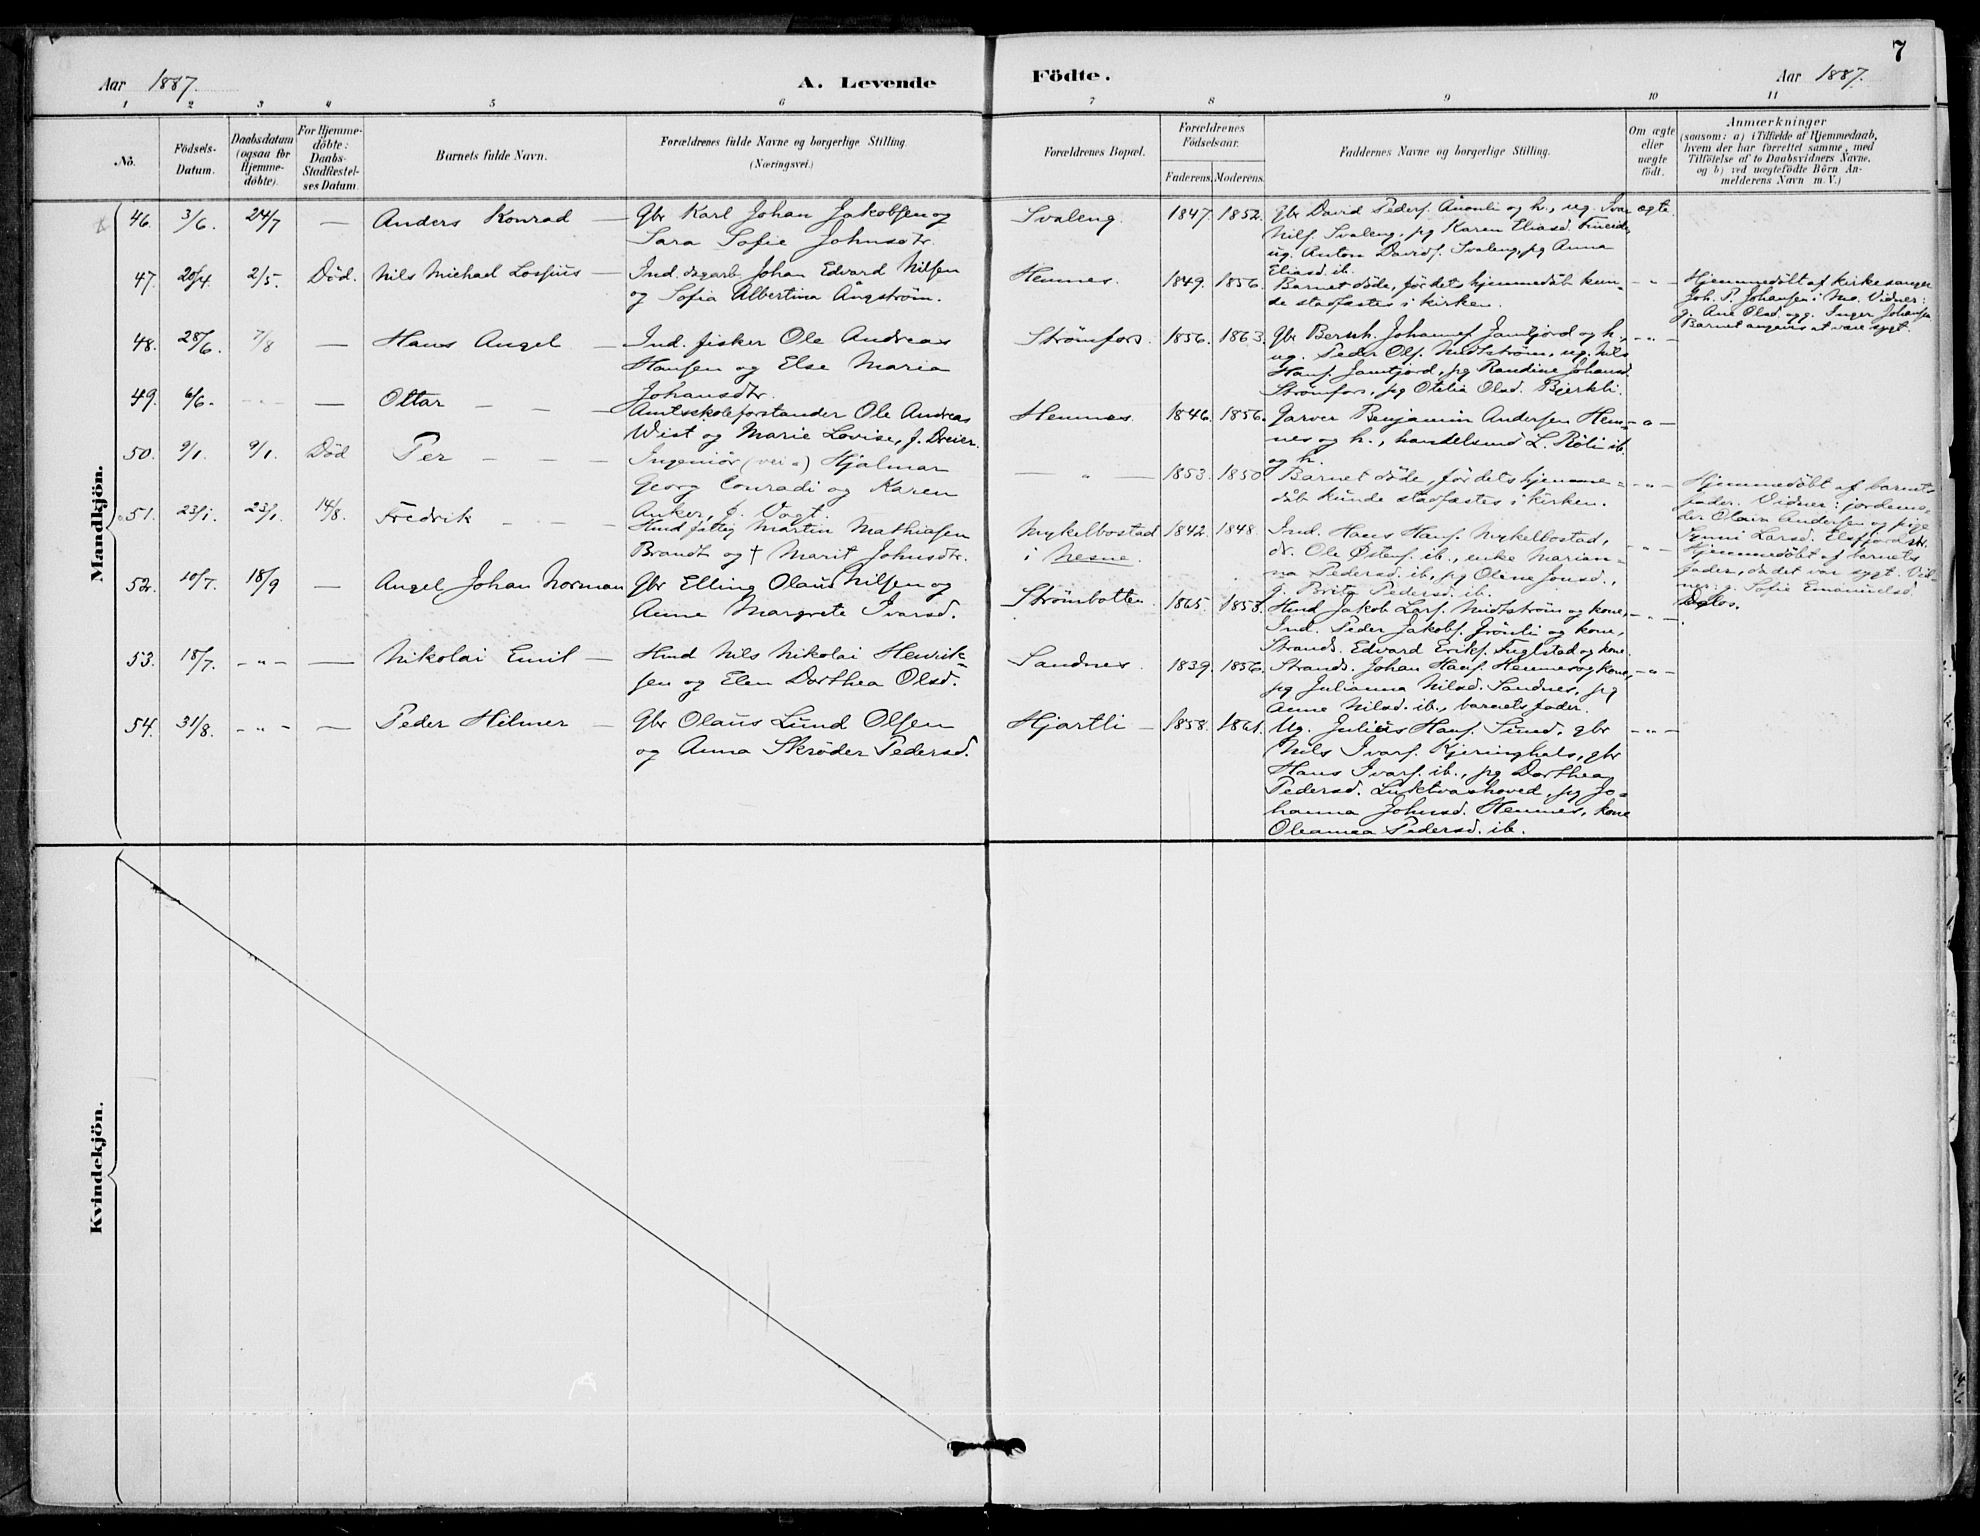 7
Aar 1887.
A. Levende
Födte.
Aar 1887.
1 2 3 4 5 6 7 8 9 10 11
No.
Födsels-
Datum.
Daabsdatum
(ogsaa for
Hjemme-
döbte).
For Hjemme-
döbte:
Daabs-
Stadfæstel-
ses Datum.
Barnets fulde Navn.
Forældrenes fulde Navne og borgerlige Stilling.
(Næringsvei.)
Forældrenes Bopæl.
Forældrenes
Födselsaar.
Faderens. Moderens.
Faddernes Navne og borgerlige Stilling.
Om ægte
eller
uægte
födt.
Anmærkninger
(saasom: a) i Tilfælde af Hjemmedaab,
hvem der har forrettet samme, med
Tilföielse af to Daabsvidners Navne,
og b) ved uægtefödte Börn An-
melderens Navn m. V.)
Mandkjön.
46. 3/6. 24/7 — Anders Konrad — Gbr Karl Johan Jakobsen og
Sara Sofie Johnsdtr.
Svaleng. 1847. 1852.
Gbr David Peders. Ånonli og h., ug. Ivar
Nils. Svaleng, pg Karen Eliasd. Fineide,
ug. Anton Davids. Svaleng, pg Anna
Eliasd. ib.
ægte.
47. 20/4. 2/5. Død. Nils Michael Lossius — Ind. dagarb. Johan Edvard Nilsen
og Sofia Albertina Ångström.
Hemnes. 1849. 1856.
Barnet døde, før dets hjemmedåb kun-
de stadfæstes i kirken.
- " -
Hjemmedøbt af kirkesanger
Joh. P. Johansen i Mo. Vidner:
g. Ane Olsd. og g. Inger Johansd.
Barnet angives at være sygt.
48. 28/6. 7/8 — Hans Angel — Ind. fisker Ole Andreas
Hansen og Else Maria
Johansdtr.
Strømfors. 1856. 1863.
Gbr Bernh. Johannes. Jamtjord og h.,
ug. Peder Ols. Midtstrøm, ug. Nils
Hans. Jamtjord, pg Randine Johansd.
Strømfors, pg Otelia Olsd. Bjerkli.
- " -
49. 6/6. - - - — Ottar — — — Amtsskoleforstander Ole Andreas
Wist og Marie Lovise, f. Dreier.
Hemnes. 1846. 1856.
Garver Benjamin Andersen Hem-
nes og h., handelsmd L. Røli ib.
og h.
- " -
50. 9/1. 9/1. Død Per — — — Ingeniør (vei-) Hjalmar
Georg Conradi og Karen
Anker, f. Vogt.
— " — 1853. 1850
Barnet døde, før dets hjemme-
dåb kunde stadfæstes i kirken.
- " -
Hjemmedøbt af barnets
fader. Vidner: jordmo-
der Olava Andersen og pige
Synni Larsd. Elsfjordstr.
51. 23/1. 23/1. 14/8. Fredrik — — — Hmd fattig Martin Mathiasen
Brandt og † Marit Johnsdtr.
Nykelbostad
i Nesne.
1842. 1848.
Ind. Hans Hans. Nykelbostad,
do. Ole Østens. ib., enke Marian-
na Pedersd. ib., pg Oline Jonsd.,
g. Brita Pedersd. ib.
- " -
Hjemmedøbt af barnets
fader, da det var sygt. Vid-
ner: g. Sofie Emanuelsd.
52. 10/7. 18/9 — Angel Johan Norman Gbr Elling Olaus Nilsen og
Anne Margrete Ivarsd.
Strømbotten. 1865. 1858.
Hmd Jakob Lars. Midtstrøm og kone,
Ind. Peder Jakobs. Grønli og kone,
Strands. Edvard Eriks. Fuglstad og kone.
- " -
53. 18/7. - " - — Nikolai Emil — Hmd Nils Nikolai Henrik-
sen og Elen Dorthea Olsd.
Sandnes. 1839. 1856.
Strands. Johan Hans. Hemnes og kone,
pg Julianna Nilsd. Sandnes, pg
Anne Nilsd. ib., barnets fader.
- " -
54. 31/8. - " - — Peder Hilmer — Gbr Olaus Lund Olsen
og Anna Skrøder Pedersd.
Hjartli — 1858. 1861.
Ug. Julius Hans. Sund, gbr
Nils Ivars. Kjeringhals, gbr
Hans Ivars. ib., pg Dorthea
Pedersd. Luktvashoved, pg Jo-
hanna Johnsd. Hemnes, kone
Oleanna Pedersd. ib.
- " -
Kvindekjön.